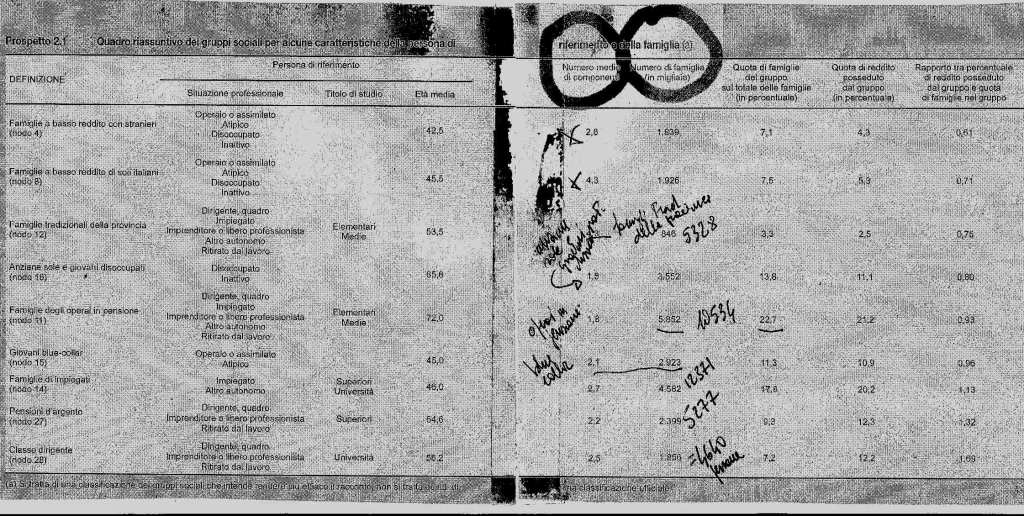 Prospetto 2.1 Quadro riassuntivo dei gruppi sociali per alcune caratteristiche della persona di riferimento e della famiglia (a)
DEFINIZIONE
Persona di riferimento
Situazione professionale Titolo di studio Età media
Numero medio di componenti
Numero di famiglie (in migliaia)
Quota di famiglie del gruppo sul totale delle famiglie (in percentuale)
Quota di reddito posseduto dal gruppo (in percentuale)
Rapporto tra percentuale di reddito posseduto dal gruppo e quota di famiglie nel gruppo
Famiglie a basso reddito con stranieri (nodo 4)
Operaio o assimilato
Atipico
Disoccupato
Inattivo
42,5 2,8 1.839 7,1 4,3 0,61
Famiglie a basso reddito di soli italiani (nodo 8)
Operaio o assimilato
Atipico
Disoccupato
Inattivo
45,5 4,3 1.926 7,5 5,3 0,71
Famiglie tradizionali della provincia (nodo 12)
Dirigente, quadro
Impiegato
Imprenditore o libero professionista
Altro autonomo
Ritirato dal lavoro
Elementari
Medie
53,5 846 3,3 2,5
5328
Anziane sole e giovani disoccupati (nodo 16)
Disoccupato
Inattivo
65,8 3.552 13,8 11,1 0,80
Famiglie degli operai in pensione (nodo 11)
Dirigente, quadro
Impiegato
Imprenditore o libero professionista
Altro autonomo
Ritirato dal lavoro
Elementari
Medie
72,0 1,8 5.852 22,7 21,2 0,93
10534
Giovani blue-collar (nodo 15)
Operaio o assimilato
Atipico
45,0 2,1 2.923 11,3 10,9 0,96
blue collar
Famiglie di impiegati (nodo 14)
Impiegato
Altro autonomo
Superiori
Università
46,0 2,7 4.582 17,8 20,2 1,13
12371
Pensioni d'argento (nodo 27)
Dirigente, quadro
Imprenditore o libero professionista
Ritirato dal lavoro
Superiori
64,6 2,2 2.399 9,3 12,3 1,32
5277
Classe dirigente (nodo 28)
Dirigente, quadro
Imprenditore o libero professionista
Ritirato dal lavoro
Università
56,2 2,5 1.856 7,2 12,2 1,69
=4640
(a) Si tratta di una classificazione dei gruppi sociali che intende rendere più efficace il racconto, non si tratta
na classificazione ufficiale.